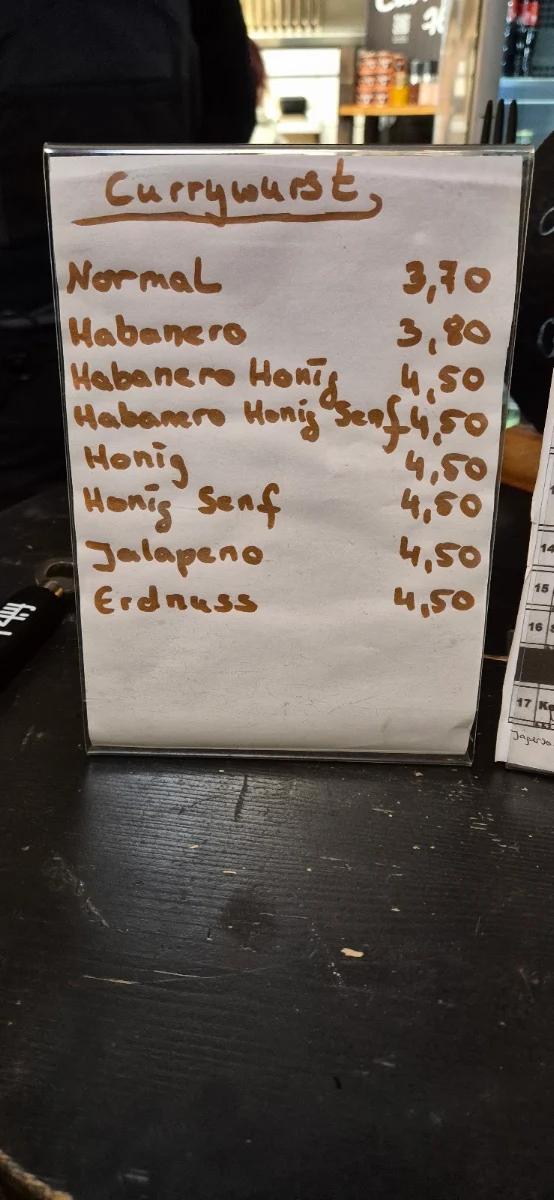 Currywurst
Normal 3,70
Habanero 3,80
Habanero Honig 4,50
Habanero Honig Senf 4,50
Honig 4,50
Honig Senf 4,50
Jalapeno 4,50
Erdnuss 4,50
14
15
16
17